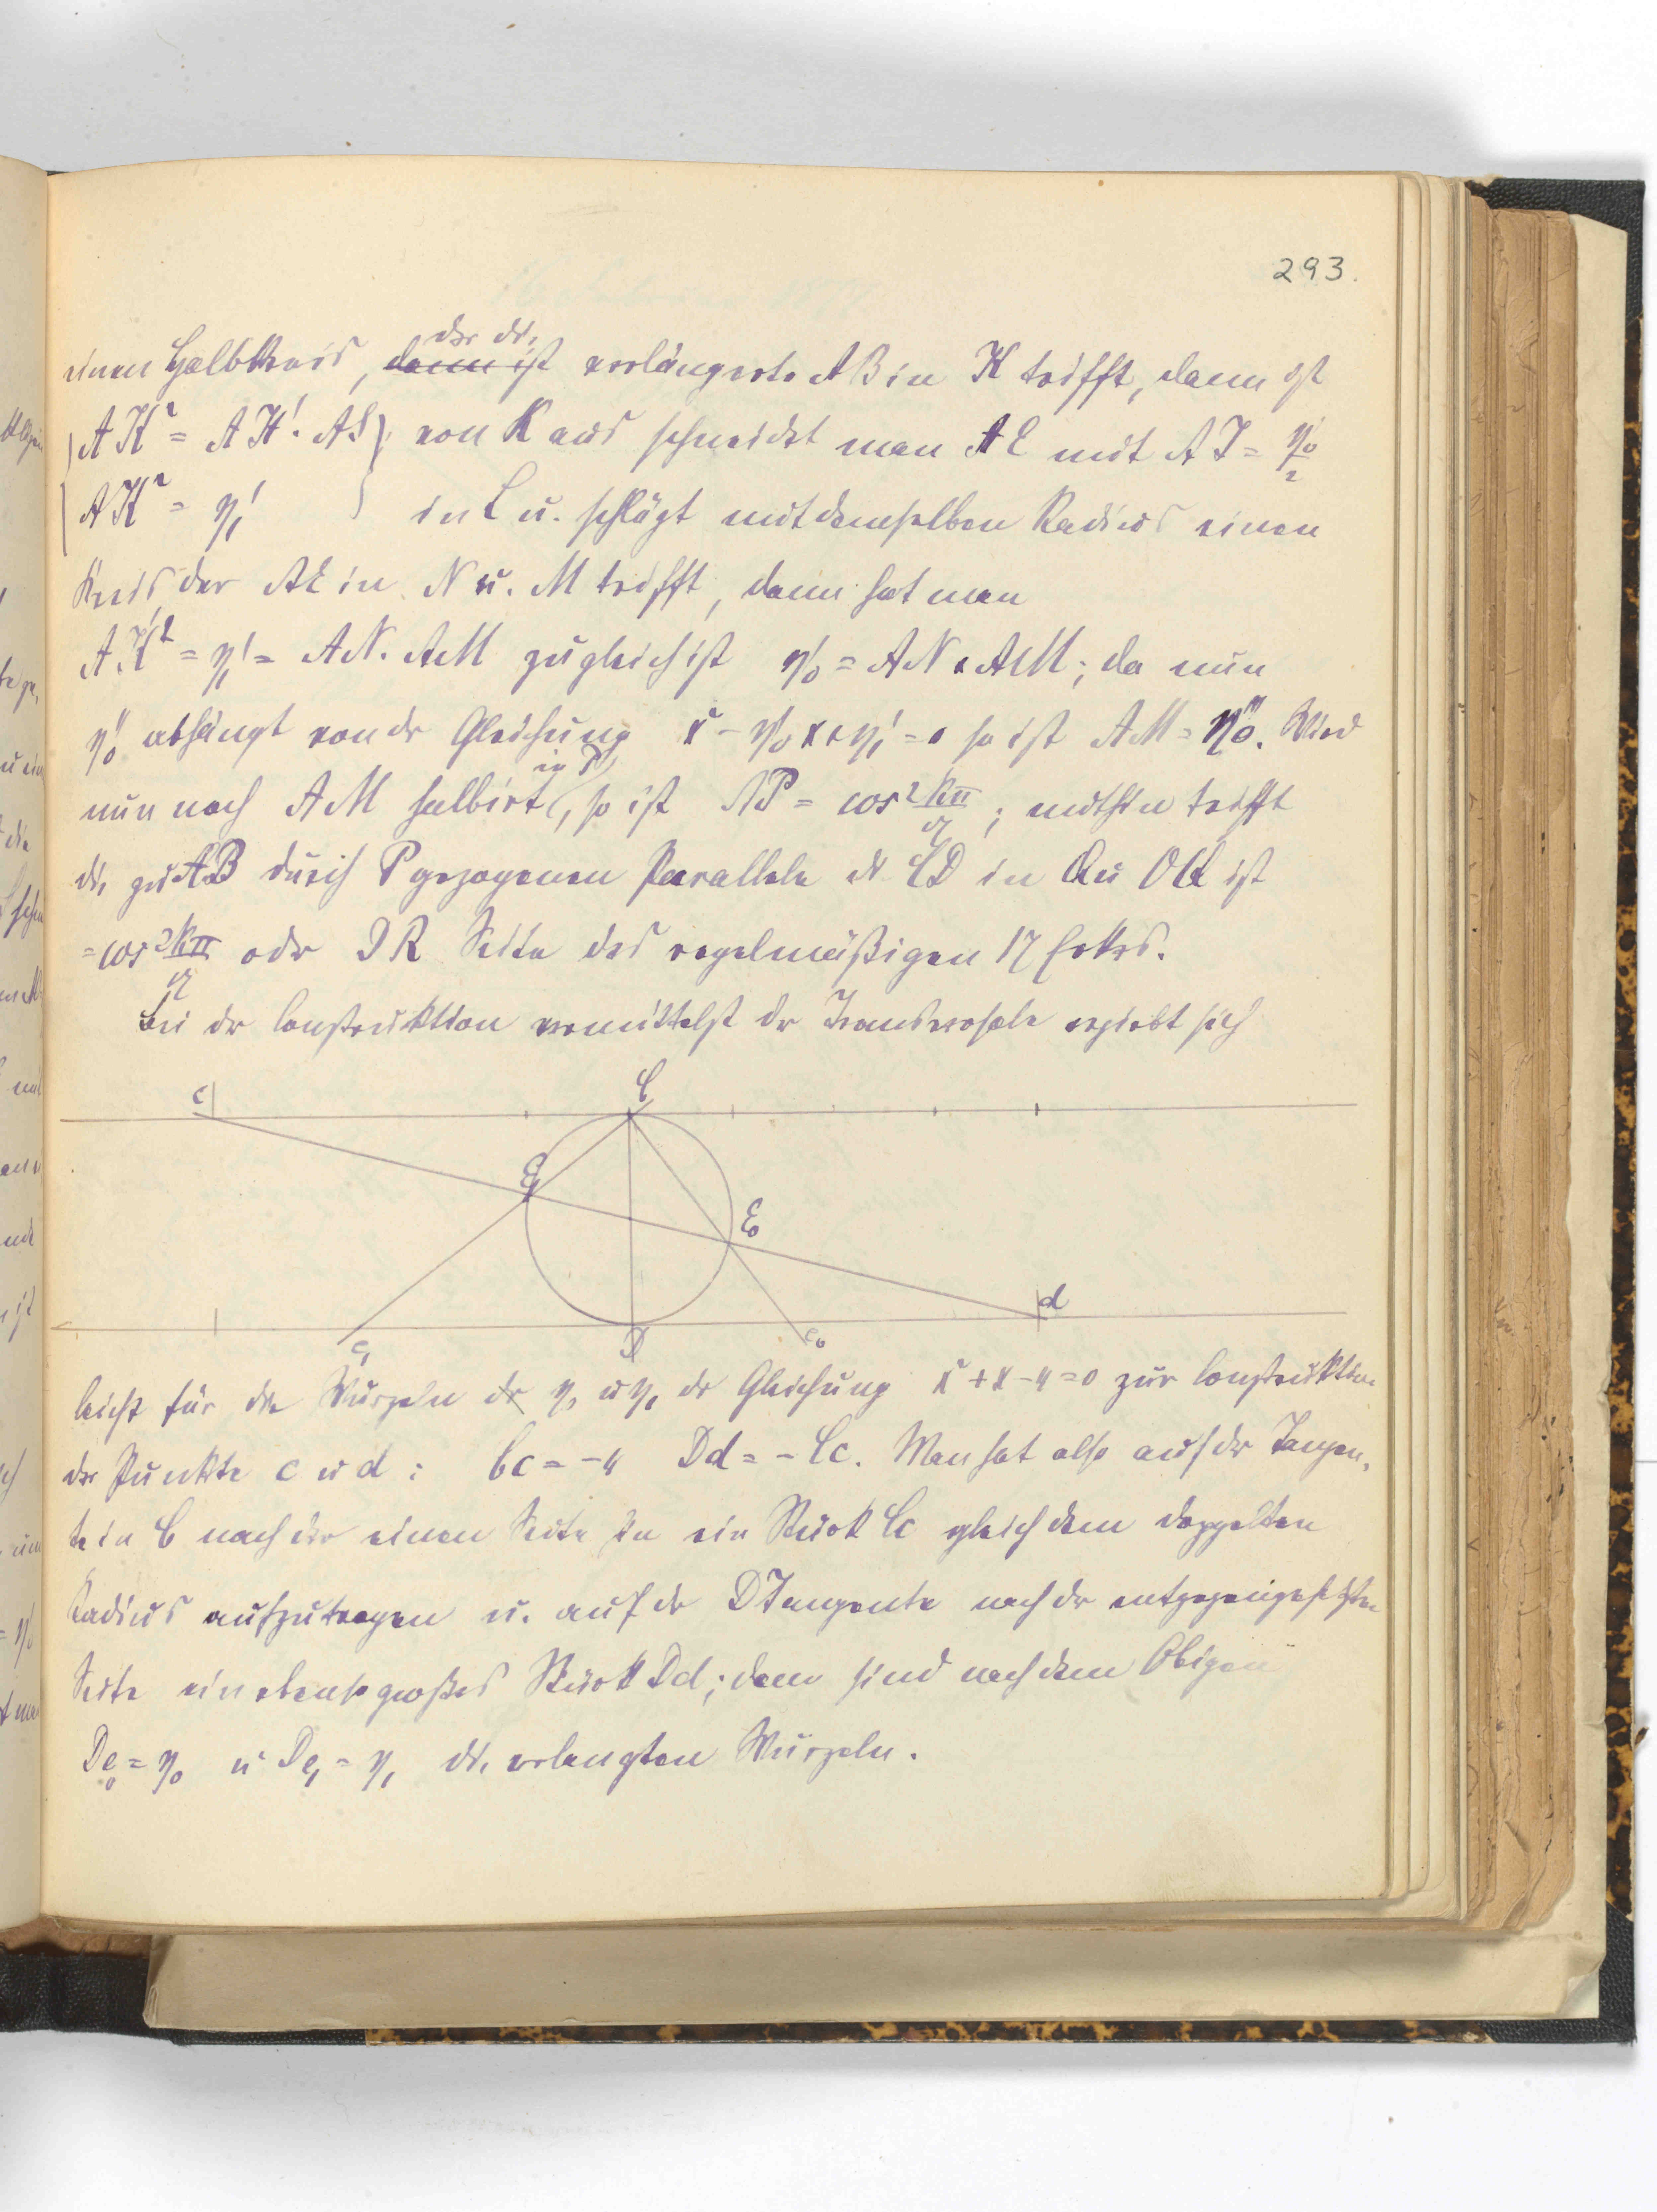 293.
der die
einen Halbkreis, dann ist verlängerte AB in K trifft, dann ist
AK² = AH'. AS von K aus schneidet man AC mit AJ = η'₀/2
AK² = η'₁ in L u. schlägt mit demselben Radius einen
Kreis der AL in N u. M trifft, dann hat man
AK² = η'₁ = AN. AM zugleich ist η'₀ = AN + AM; da nun
η''₀ abhängt von der Gleichung x² - η'₀x + η'₁ = 0 so ist AM = η''₀. Wird
in P
nun noch AM halbirt, so ist AP = cos 2kπ/17; mithin trifft
die zu AB durch P gezogenen Parallele die CD in Q u OQ ist
= cos 2kπ/17 oder DR Seite des regelmäßigen 17 Eckes.
Bei der Construktion vermittelst der Transversale ergiebt sich
c C
E₁
E₀
d
e₁ D e₀
leicht für die Wurzeln der η₀ u η₁ der Gleichung x² + x - 4 = 0 zur Construktion
der Punkte c u d: Cc = -4 Dd = -Cc. Man hat also auf der Tangen-
te in C nach der einen Seite hin ein Stück Cc gleich dem doppelten
Radius aufzutragen u. auf der D Tangente nach der entgegengesetzten
Seite ein ebenso großes Stück Dd; dann sind nach dem Obigen
De₀ = η₀ u De₁ = η₁ die verlangten Wurzeln.